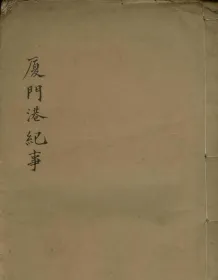 厦門港紀事